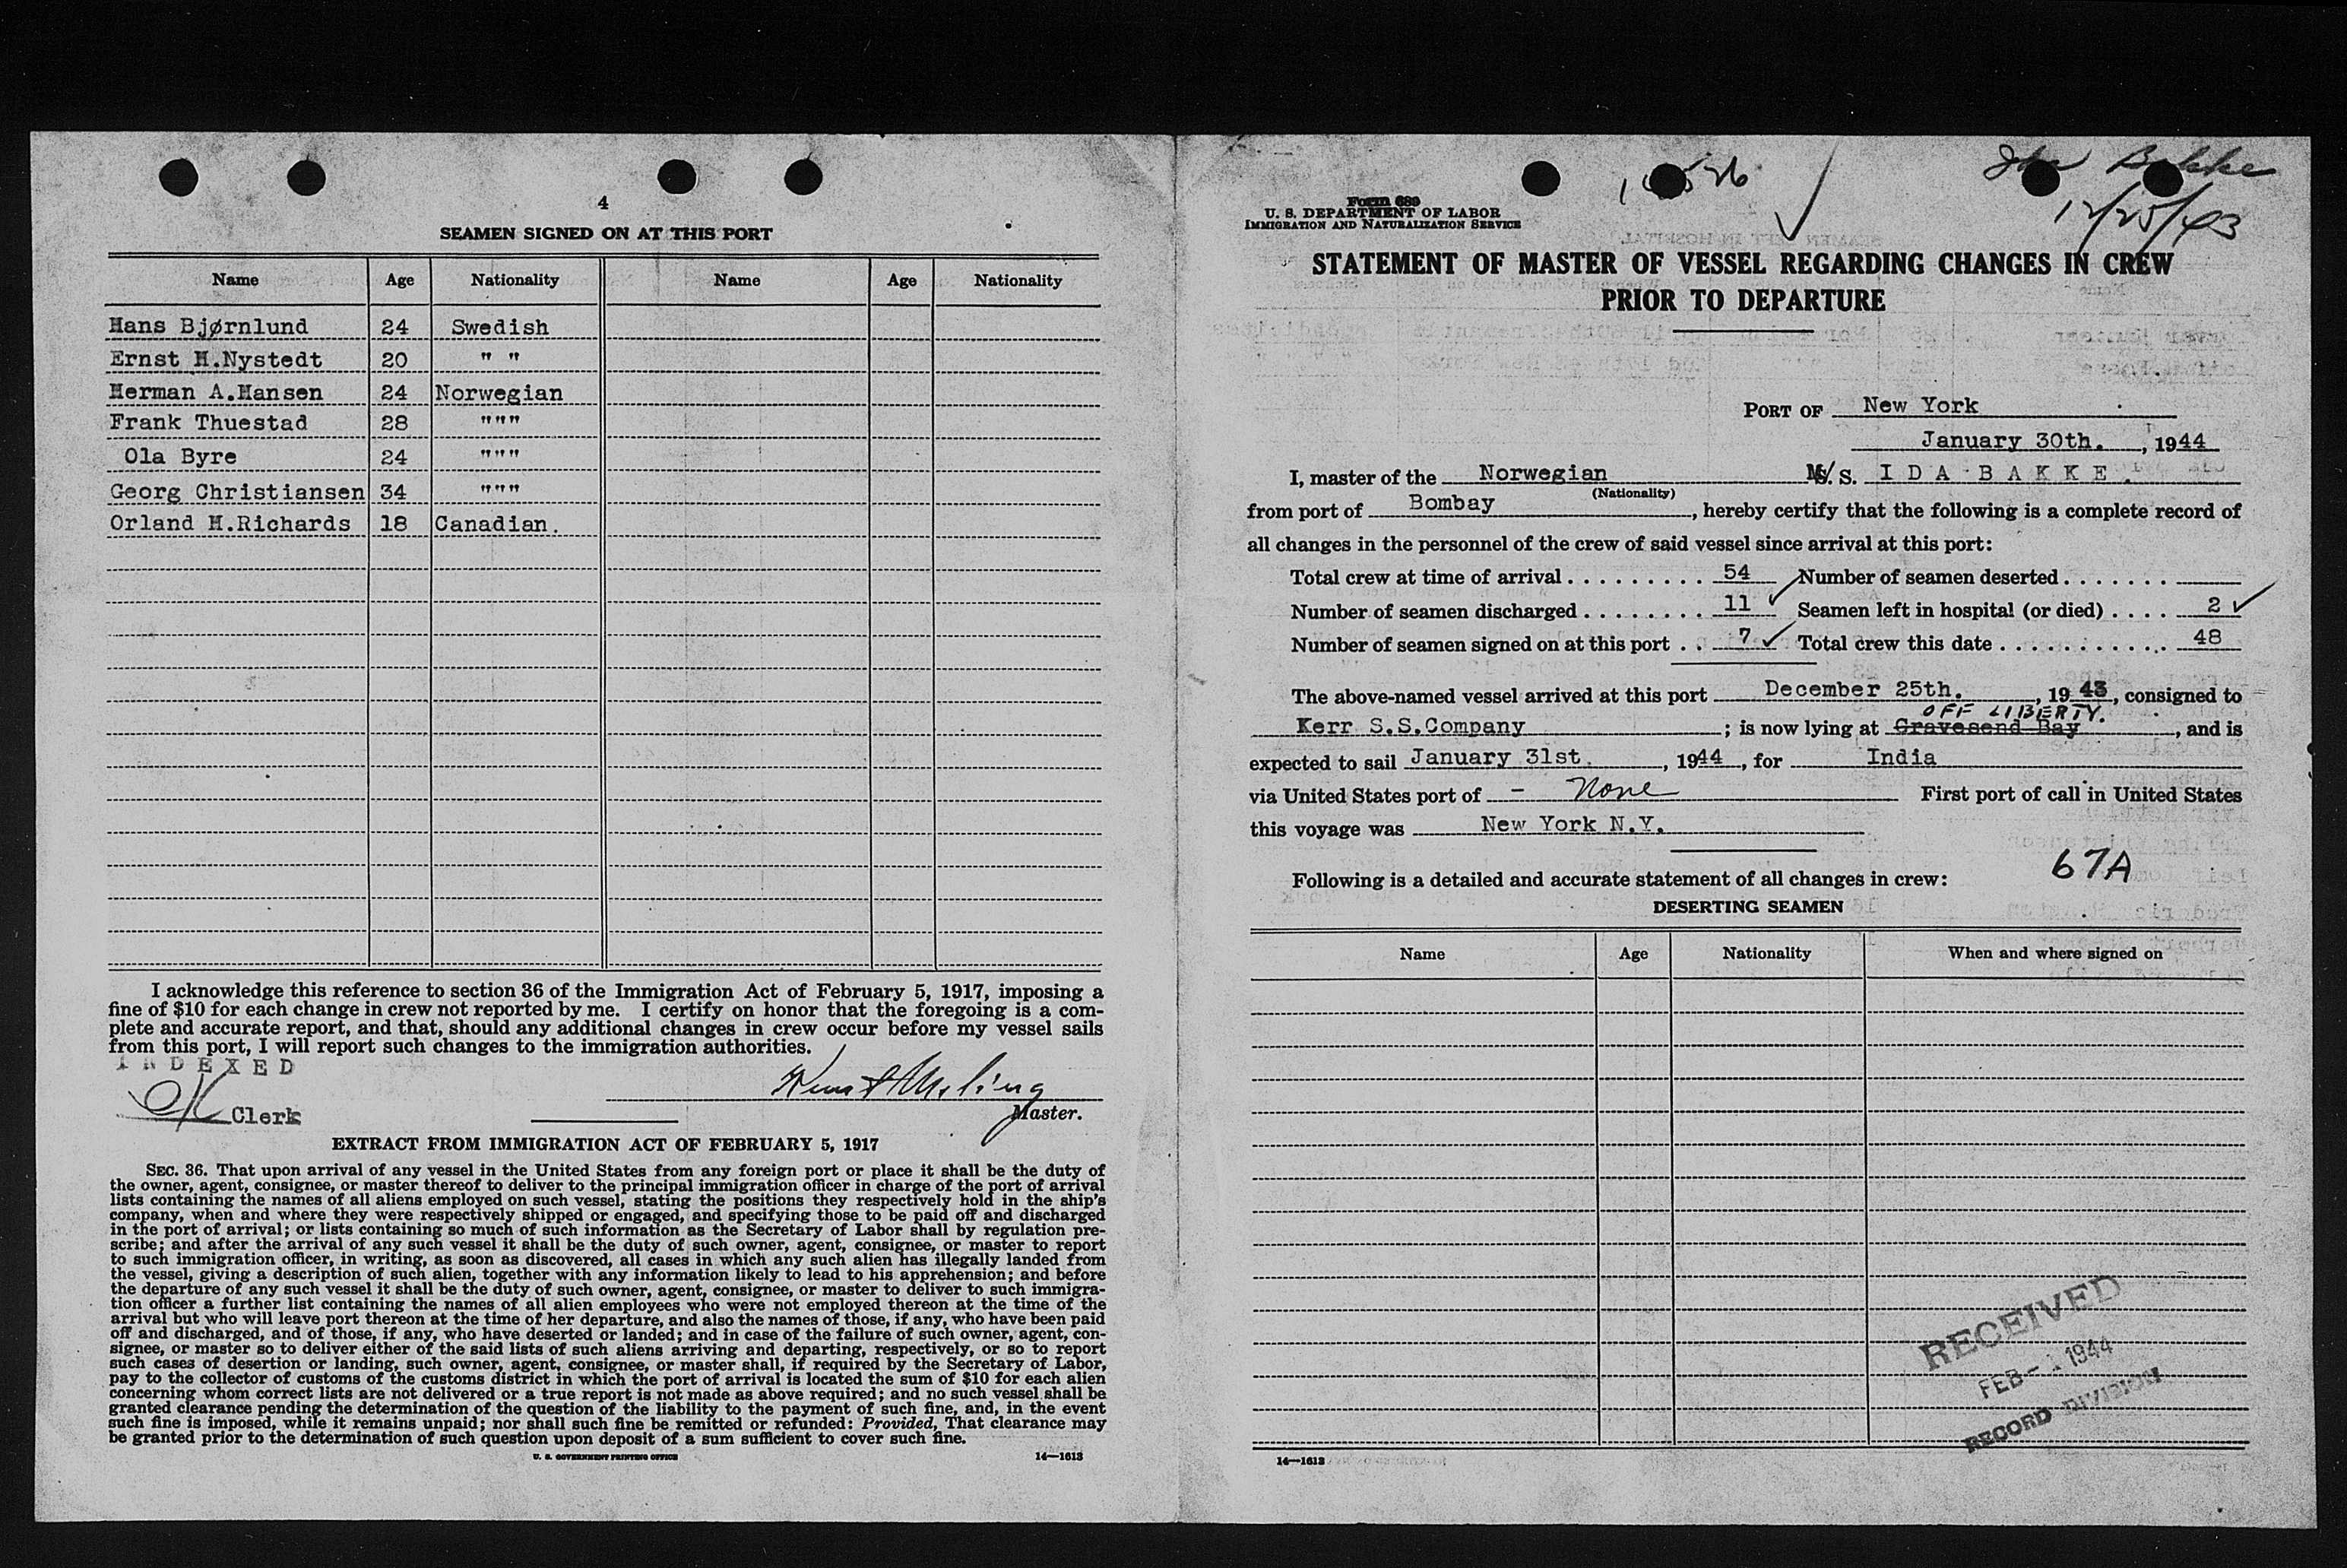 4
SEAMEN SIGNED ON AT THIS PORT
Name Age Nationality Name Age Nationality
Hans Bjørnlund 24 Swedish
Ernst H.Nystedt 20 " "
Herman A.Hansen 24 Norwegian
Frank Thuestad 28 """
Ola Byre 24 """
Georg Christiansen 34 """
Orland H.Richards 18 Canadian.
I acknowledge this reference to section 36 of the Immigration Act of February 5, 1917, imposing a
fine of $10 for each change in crew not reported by me. I certify on honor that the foregoing is a com-
plete and accurate report, and that, should any additional changes in crew occur before my vessel sails
from this port, I will report such changes to the immigration authorities.
INDEXED
Clerk
Master.
EXTRACT FROM IMMIGRATION ACT OF FEBRUARY 5, 1917
SEC. 36. That upon arrival of any vessel in the United States from any foreign port or place it shall be the duty of
the owner, agent, consignee, or master thereof to deliver to the principal immigration officer in charge of the port of arrival
lists containing the names of all aliens employed on such vessel, stating the positions they respectively hold in the ship's
company, when and where they were respectively shipped or engaged, and specifying those to be paid off and discharged
in the port of arrival; or lists containing so much of such information as the Secretary of Labor shall by regulation pre-
scribe; and after the arrival of any such vessel it shall be the duty of such owner, agent, consignee, or master to report
to such immigration officer, in writing, as soon as discovered, all cases in which any such alien has illegally landed from
the vessel, giving a description of such alien, together with any information likely to lead to his apprehension; and before
the departure of any such vessel it shall be the duty of such owner, agent, consignee, or master to deliver to such immigra-
tion officer a further list containing the names of all alien employees who were not employed thereon at the time of the
arrival but who will leave port thereon at the time of her departure, and also the names of those, if any, who have been paid
off and discharged, and of those, if any, who have deserted or landed; and in case of the failure of such owner, agent, con-
signee, or master so to deliver either of the said lists of such aliens arriving and departing, respectively, or so to report
such cases of desertion or landing, such owner, agent, consignee, or master shall, if required by the Secretary of Labor,
pay to the collector of customs of the customs district in which the port of arrival is located the sum of $10 for each alien
concerning whom correct lists are not delivered or a true report is not made as above required; and no such vessel shall be
granted clearance pending the determination of the question of the liability to the payment of such fine, and, in the event
such fine is imposed, while it remains unpaid; nor shall such fine be remitted or refunded: Provided, That clearance may
be granted prior to the determination of such question upon deposit of a sum sufficient to cover such fine.
U. S. GOVERNMENT PRINTING OFFICE 14—1613
Ida Bakke
12/25/43
Form 689
U. S. DEPARTMENT OF LABOR
IMMIGRATION AND NATURALIZATION SERVICE
STATEMENT OF MASTER OF VESSEL REGARDING CHANGES IN CREW
PRIOR TO DEPARTURE
PORT OF New York
January 30th. , 1944
I, master of the Norwegian M/S. S. IDA BAKKE.
(Nationality)
from port of Bombay , hereby certify that the following is a complete record of
all changes in the personnel of the crew of said vessel since arrival at this port:
Total crew at time of arrival 54 Number of seamen deserted
Number of seamen discharged 11 Seamen left in hospital (or died) 2
Number of seamen signed on at this port 7 Total crew this date 48
The above-named vessel arrived at this port December 25th. , 1943, consigned to
OFF LIBERTY.
Kerr S.S.Company ; is now lying at Gravesend Bay , and is
expected to sail January 31st. , 1944 , for India
via United States port of - None First port of call in United States
this voyage was New York N.Y.
67A
Following is a detailed and accurate statement of all changes in crew:
DESERTING SEAMEN
Name Age Nationality When and where signed on
RECEIVED
FEB - 1 1944
RECORD DIVISION
14—1613